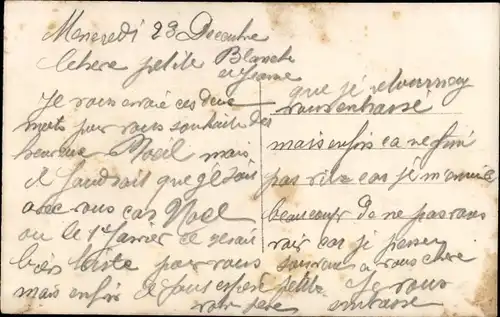 Mercredi 23 Decembre
Chere petite Blanche
et Jeanne
Je vous envoie ces deux
mots pour vous souhaite des
heureuse Noël mais
il faudrait que je soit
avec vous car Noël
ou le 1er Janvier ce serait
bien triste pour vous
mais enfin il faut esperer
voir pere
que je
vous embrasse
mais enfin ca ne fini
pas vite car je m'ennuie
beaucoup de ne pas vous
voir car je pense
a vous chere
petite Je vous
embrasse